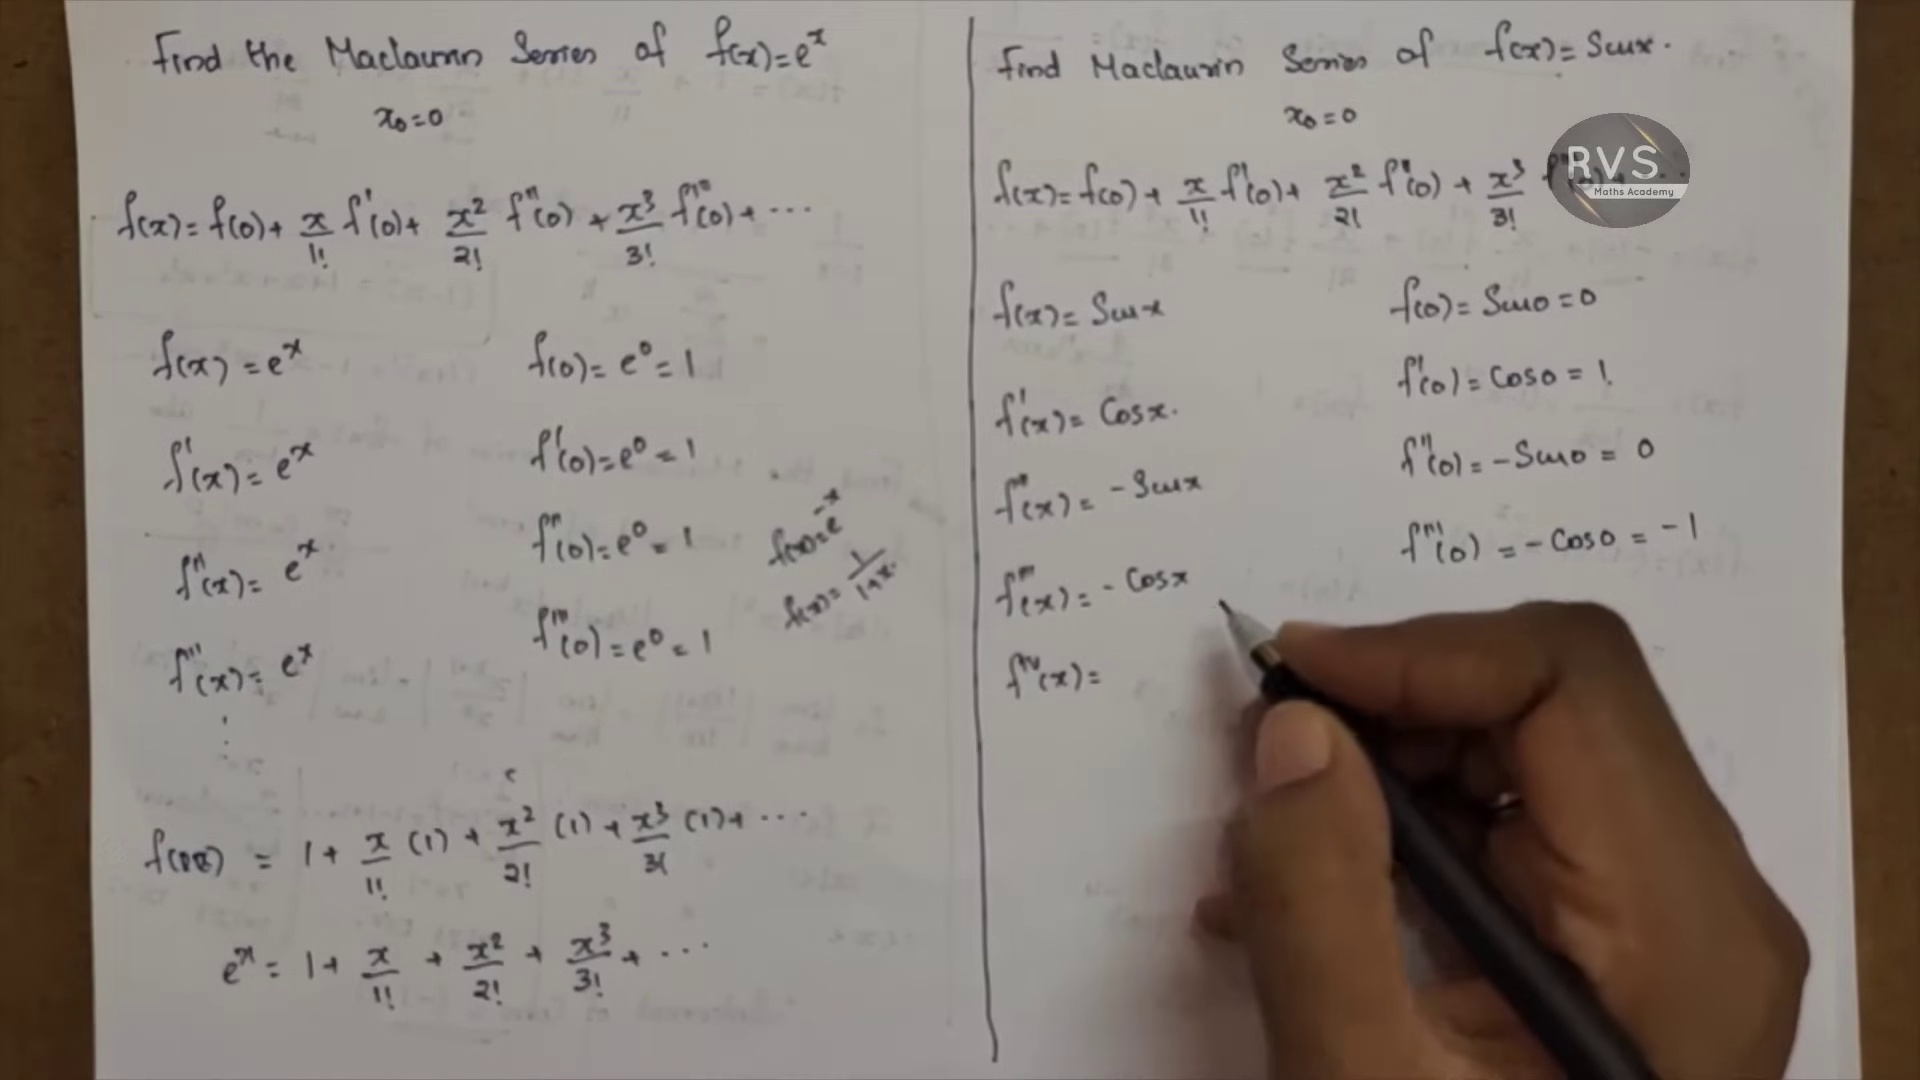 Find the Maclaurin Series of f(x)=e^x
x₀=0
f(x)=f(0)+ x/1! f'(0)+ x²/2! f''(0) + x³/3! f'''(0)+ ...
f(x) = e^x
f(0)= e⁰=1
f'(x)= e^x
f'(0)=e⁰=1
f''(x)= e^x
f''(0)=e⁰=1
f'''(x)= e^x
f'''(0)=e⁰=1
f(x)=e^-x
f(x)= 1/1+x.
= 1+ x/1! (1) + x²/2! (1) + x³/3! (1)+ ...
e^x = 1+ x/1! + x²/2! + x³/3! + ...
Find Maclaurin Series of f(x)= Sinx.
x₀=0
f(x)=f(0)+ x/1! f'(0)+ x²/2! f''(0) + x³/3!
RVS
Maths Academy
f(x)= Sinx
f(0)= Sin0=0
f'(x)= Cosx.
f'(0)= Cos0=1.
f''(x)= -Sinx
f''(0)=-Sin0= 0
f'''(x)= -Cosx
f'''(0) = -Cos0 = -1
f^iv(x)=